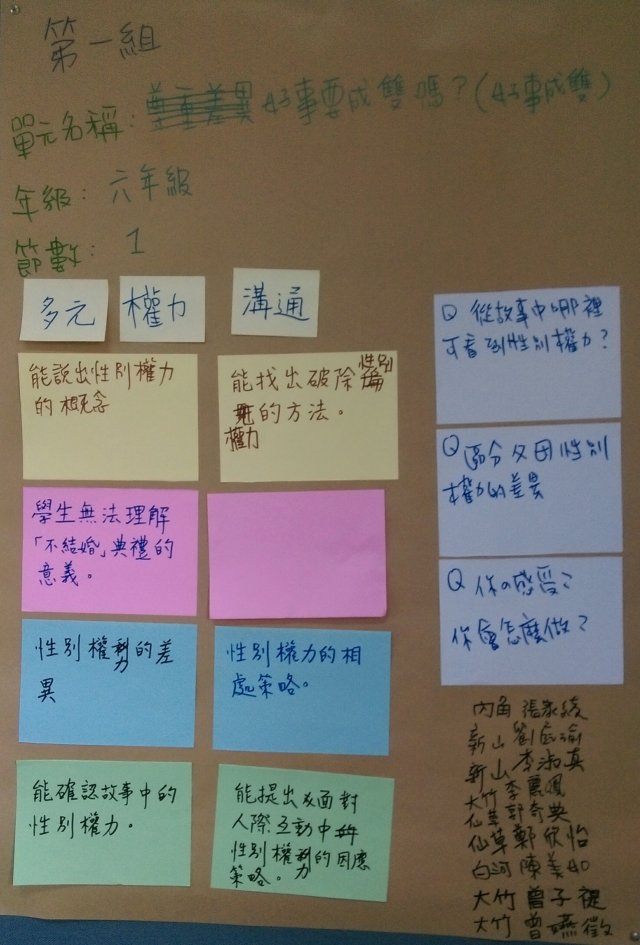 第一組
單元名稱：尊重差異 好事要成雙嗎？(好事成雙)
年級：六年級
節數：1
多元
權力
溝通
能說出性別權力
的概念
能找出破除性別
的方法。
權力
學生無法理解
「不結婚」典禮的
意義。
性別權力的差
異
性別權力的相
處策略。
能確認故事中的
性別權力。
能提出及面對
人際互動中
性別權力的因應
策略。
Q 從故事中哪裡
可看到性別權力？
Q 區分父母性別
權力的差異
Q 你の感受？
你會怎麼做？
內角 張家綾
新山 劉宸瑜
新山 李淑真
大竹 李麗鳳
仙草 郭奇典
仙草 鄭欣怡
白河 陳美如
大竹 曾子禔
大竹 曹燕徵